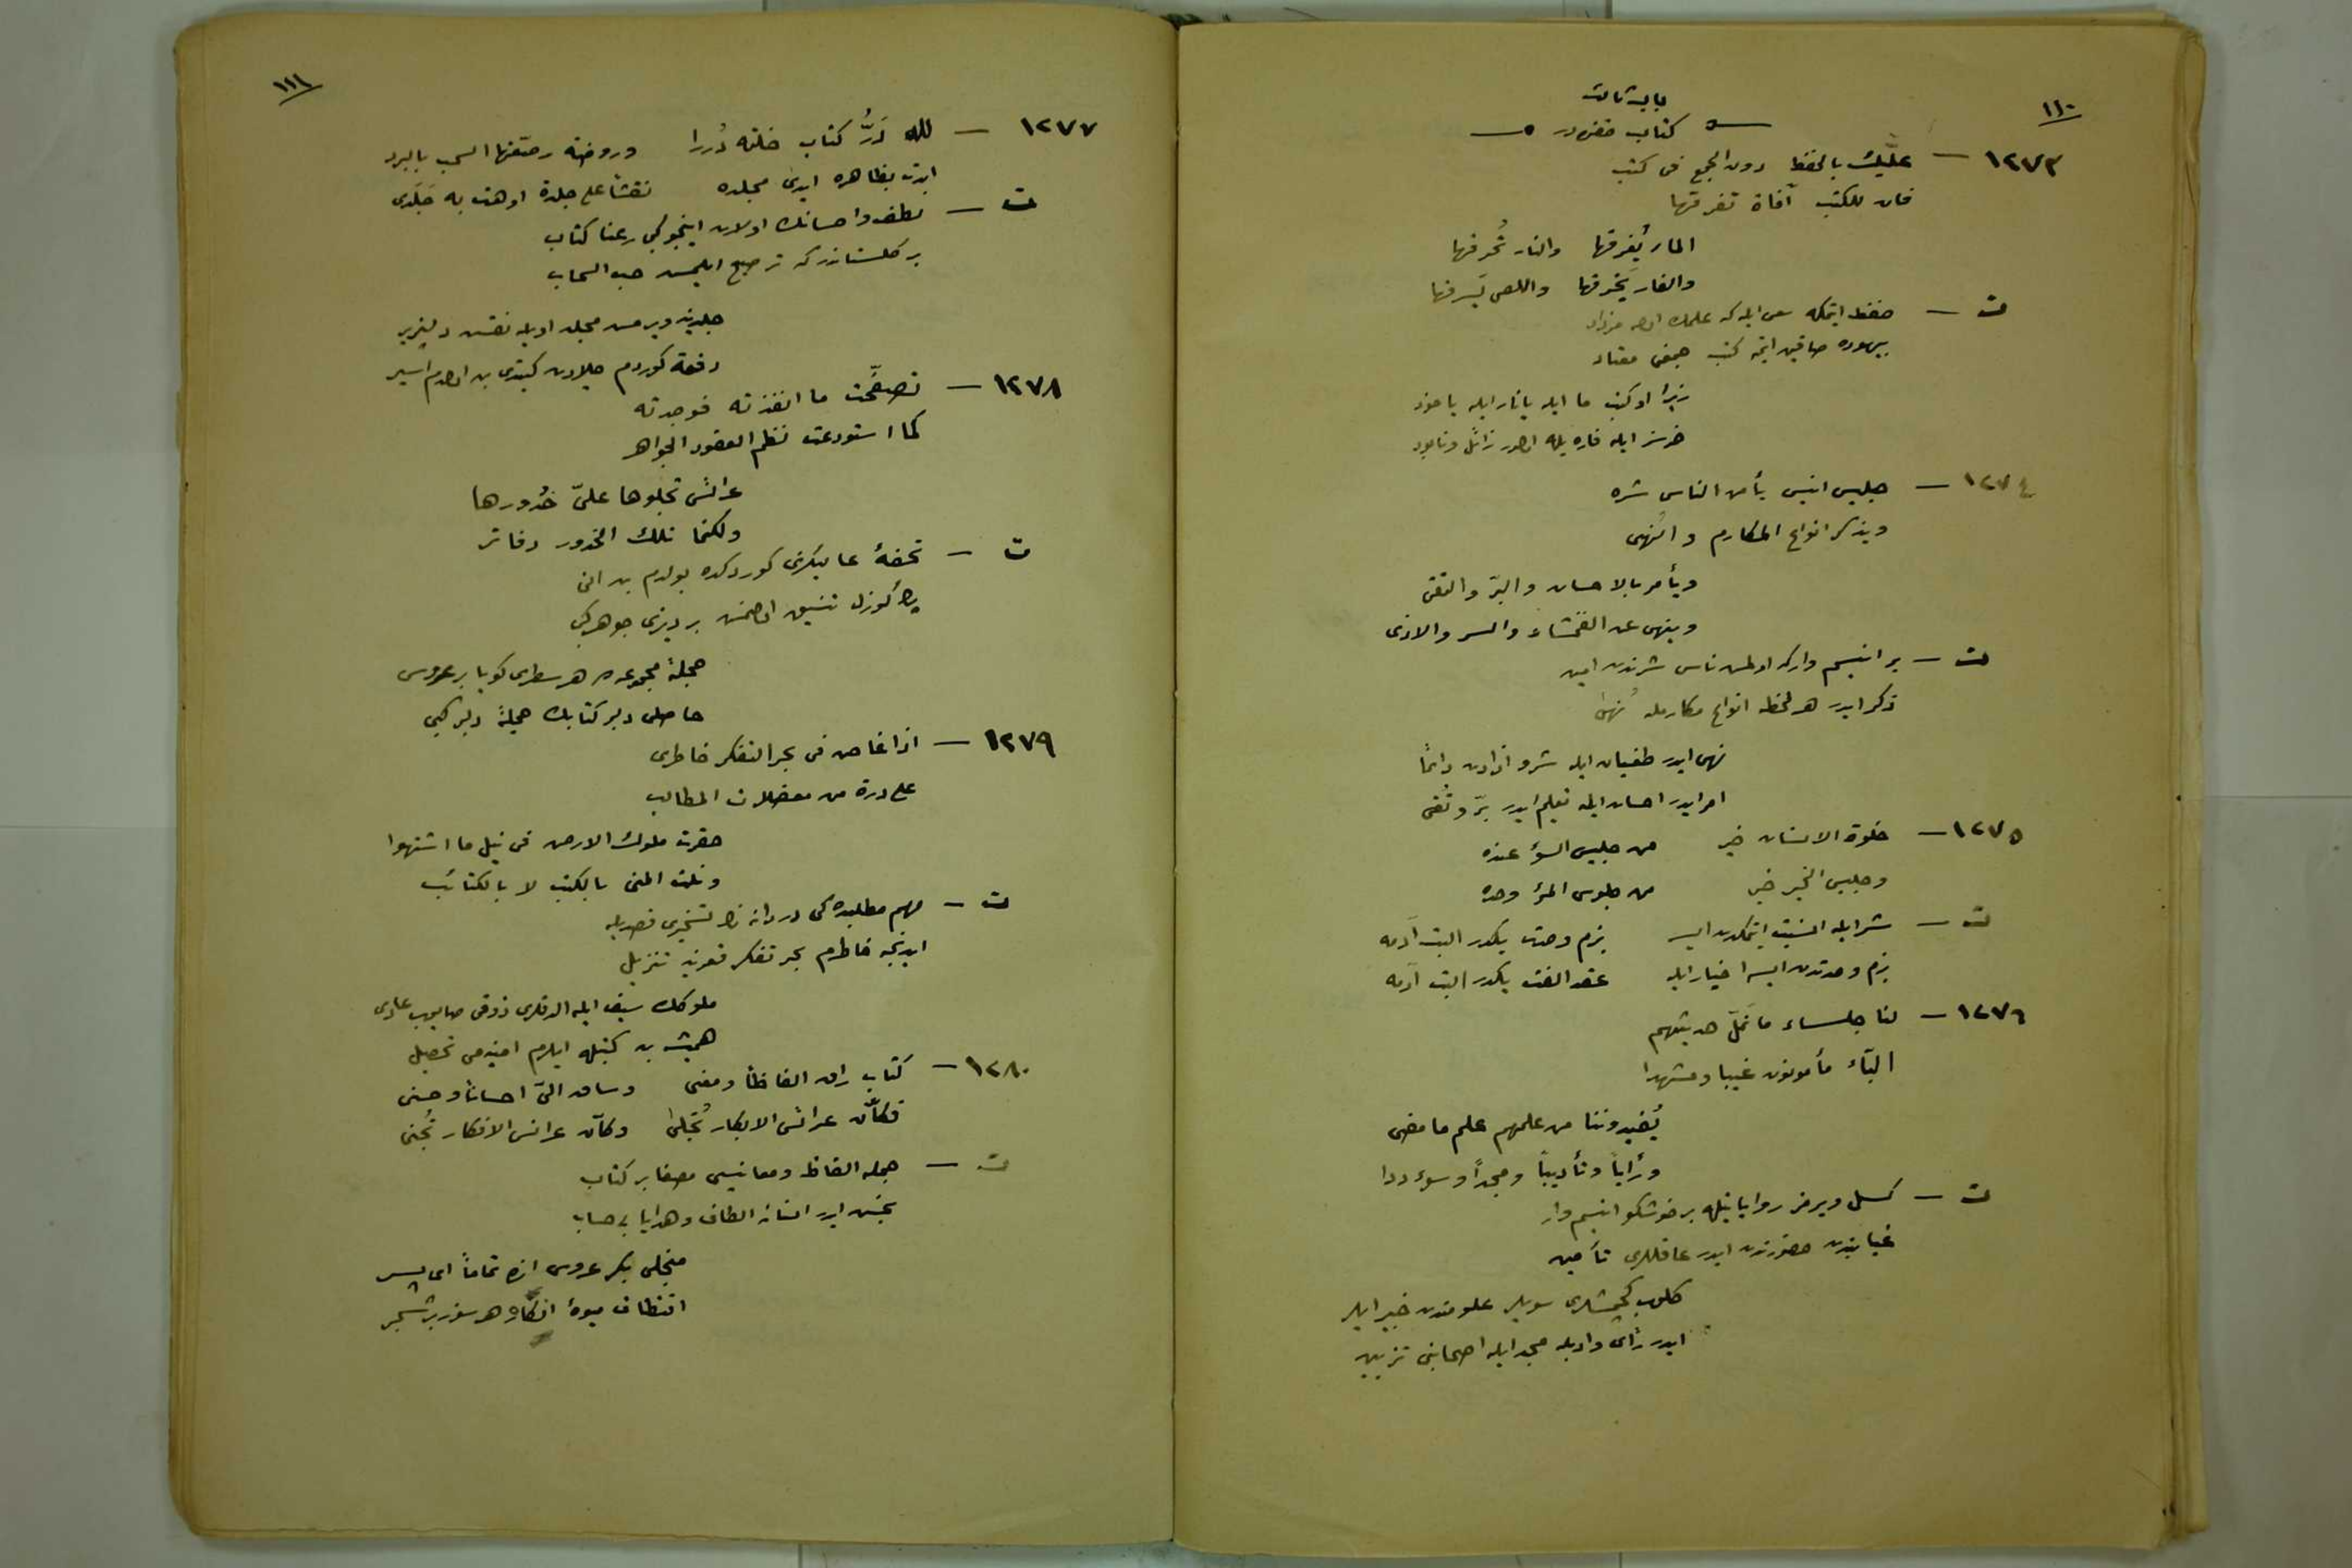 ١١٠
باب ثالث
كتاب حقنده در
١٢٧٣ — عليك بالحفظ دون الجمع فى كتب
فان للكتب آفاة تفرقها
الماء يُغرقها والنار تُحرقها
والفار يَخرقها واللص يَسرقها
ت — حفظ ايتمكه سعى ايله كه علمك اوله مزداد
بيهوده صاقين ايتمه كتب جمعنى معتاد
زيرا او كتب ما ايله يا نار ايله ياخود
خرسز ايله فاره يله اولور زائل و نابود
١٢٧٤ — جليس انيس يأمن الناس شره
ويذكر انواع المكارم والنهى
ويأمر بالاحسان والبرّ والتقى
وينهى عن الفحشاء والسر والاذى
ت — بر انيسم وار كه اولمش ناس شرندن امين
ذكر ايدر هر لحظه انواع مكارمله نُهىٰ
نهى ايدر طغيان ايله شر و اذادن دائماً
امر ايدر احسان ايله تعليم ايدر برّ و تُقى
١٢٧٥ — خلوة الانسان خير من جليس السؤ عنده
وجليس الخير خير من جلوس المرؤ وحده
ت — شر ايله انسيت ايتمكدن ايسه بزم وحدت يكدر البت آدمه
بزم وحدتدن ايسه اخيار ايله عقد الفت يكدر البت آدمه
١٢٧٦ — لنا جلساء ما نَمَلّ حديثهم
البّاء مأمونون غيبا ومشهدا
يُفيدوننا من علمهم علم ما مضى
ورأياً وتأديباً ومجداً وسوءددا
ت — كسل ويرمز رواياتيله بر خوشكو انيسم وار
غيابنده حضورنده ايدر عاقللرى تأمين
كلوب كچمشلرى سويلر علومندن خبير ايلر
ايدر رأى و ادبله مجد ايله اصحابنى تزيين
١١١
١٢٧٧ — لله دَرُّ كتاب خلته دُررا وروضة رصّعتها السحب بالبرد
ابدت بظاهره ايدى مجلده نقشاً على جلدة اوهت به جَلَدى
ت — لطف و احسانك اولان اينجو كبى رعنا كتاب
بر كلستاندر كه ترصيع ايلمش حب السحاب
جلدينه ويرمش مجلد اويله نقش دلپذير
دفعة كوردم جلادت كيتدى بن اولدم اسير
١٢٧٨ — تصفّحت ما انفذته فوجدته
كما استودعت نظم العقود الجواهر
عرائس تجلوها علىّ خُدورها
ولكنما تلك الخدور دفاتر
ت — تحفهٔ عاليكزى كوردكده بولدم بن انى
پك كوزل تنسيق اولمش بر ديزى جوهر كبى
حجلهٔ مجموعه ده هر سطرى كويا بر عروس
حاصلى دلبر كتابك حجلهٔ دلبر كبى
١٢٧٩ — اذا غاص فى بحر التفكر خاطرى
على درة من معضلات المطالب
حقرت ملوك الارض فى نيل ما اشتهوا
ونلت المنى بالكتب لا بالكتائب
ت — مهم مطلبده كى دردانه نك تسخيرى قصديله
ايدنجه خاطرم بحر تفكر قعرينه تنزيل
ملوكك سيف ايله الدقلرى ذوقى صايوب عادى
هميشه بن كتبله ايلرم امنيه مى تحصيل
١٢٨٠ — كتاب راق الفاظاً ومعنى وساق الىّ احساناً وحسنى
فكأنّ عرائس الابكار تُجلىٰ وكأن عرائس الافكار تُجنى
ت — جمله الفاظ و معانيسى مصفا بر كتاب
بخش ايدر انسانه الطاف و هدايا بى حساب
منجلى بكر عروس انده تماماً اى پسر
اقتطاف ميوهٔ افكاره هر سوز بر شجر